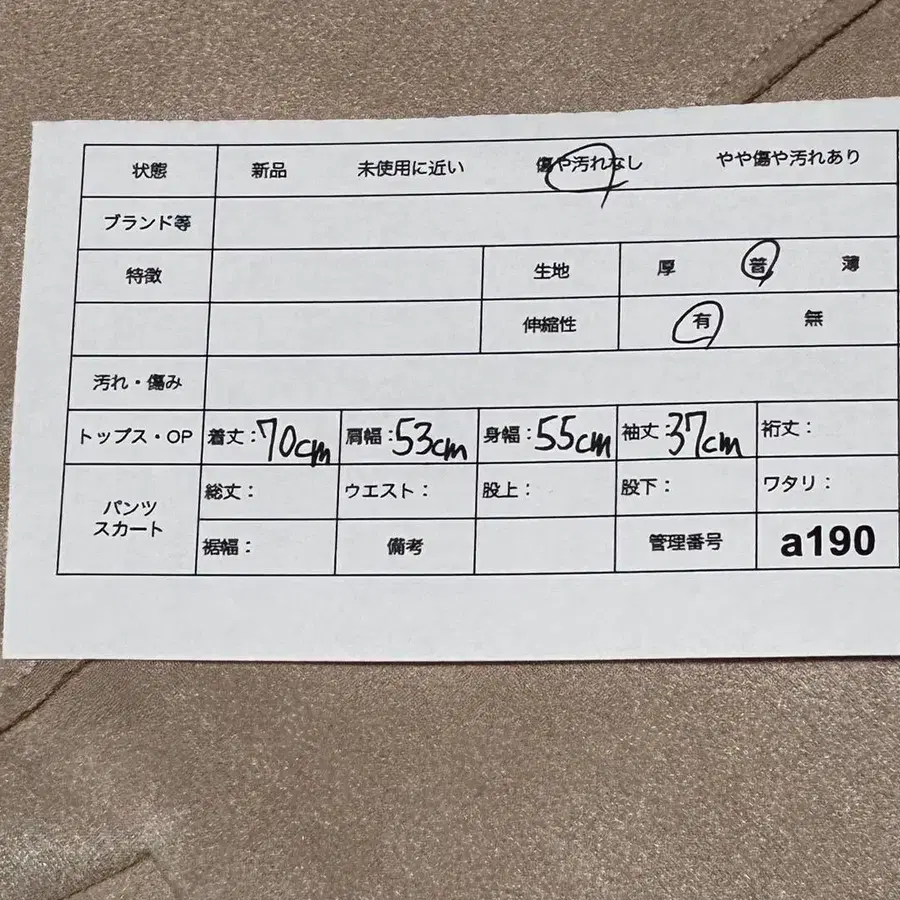 状態 新品 未使用に近い 傷や汚れなし やや傷や汚れあり
ブランド等
特徴 生地 厚 普 薄
伸縮性 有 無
汚れ・傷み
トップス・OP 着丈：70cm 肩幅：53cm 身幅：55cm 袖丈：37cm 裄丈：
パンツ スカート 総丈： ウエスト： 股上： 股下： ワタリ：
裾幅： 備考 管理番号 a190